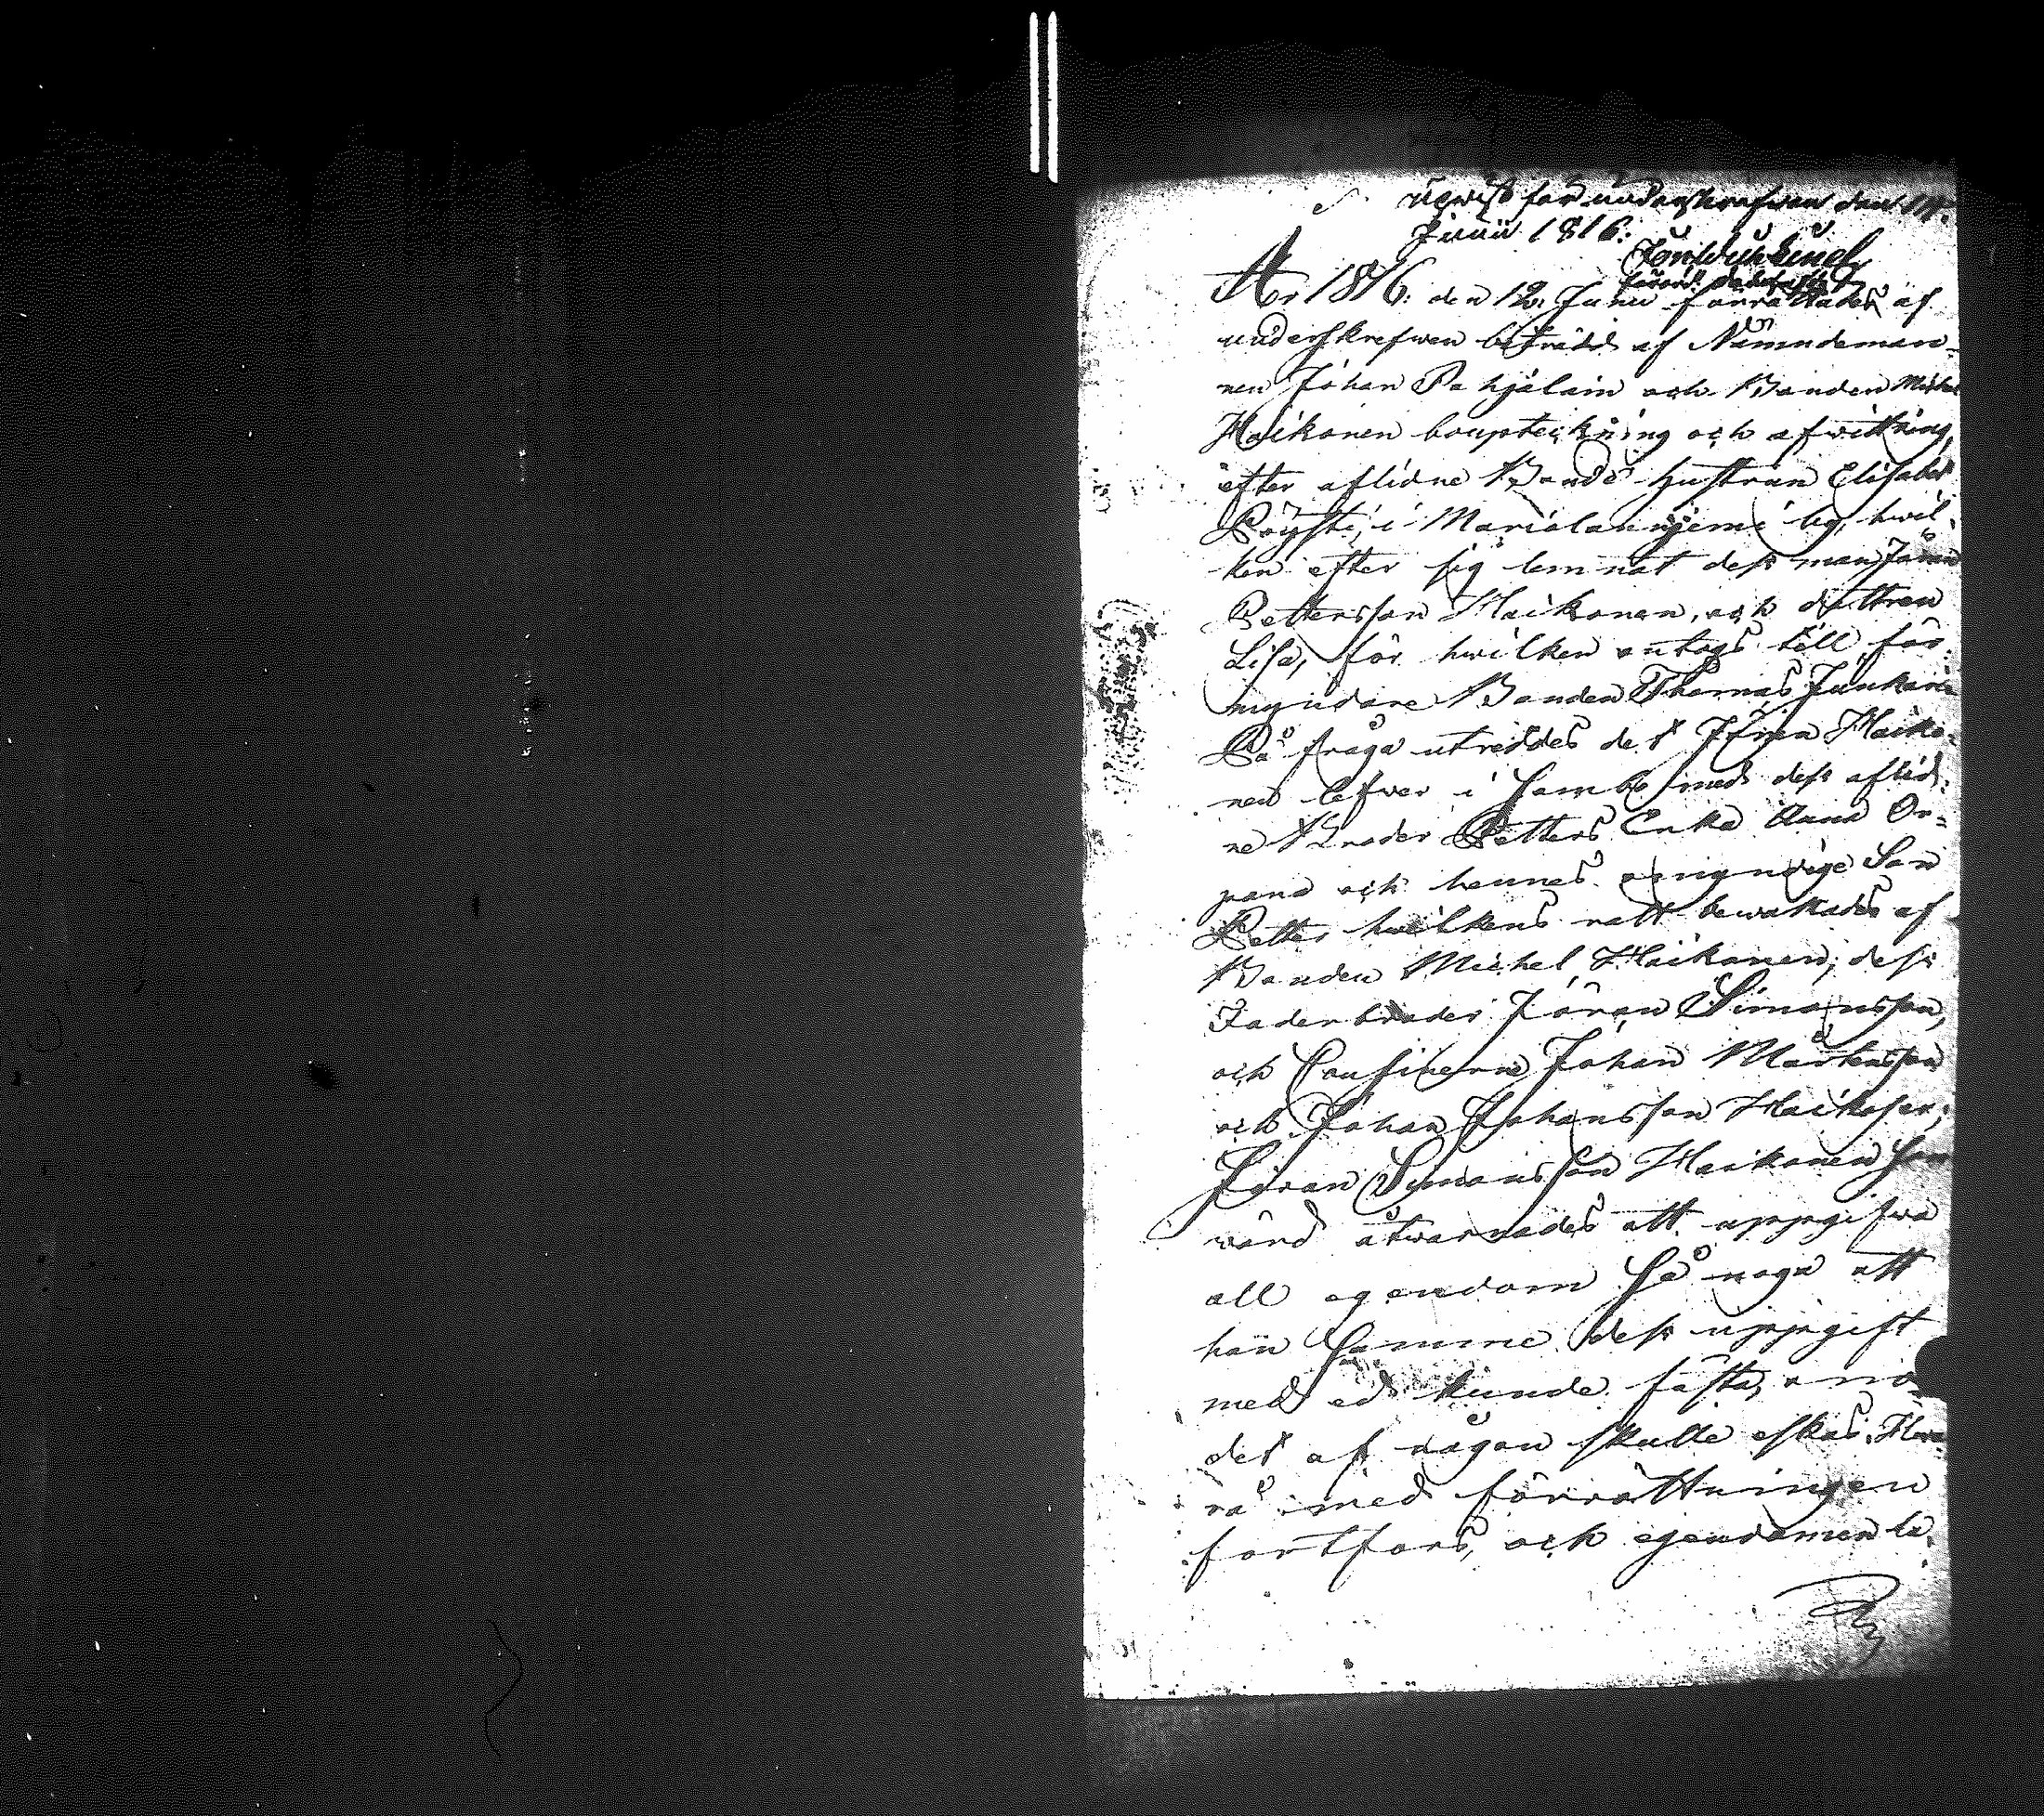 Upwist för underskrefwen den
Junii 1816:
År 1816: den 12. Junii förrättades af
underskrefwen biträdd af Nämndeman-
nen Johan Pahjalain och Bonden Michel
Haikonen bouptekning och afwittring
efter aflidne Bonde hustrun Elisabet
Pöysti, i Marialanniemi by, hwil-
ken efter sig lemnat dess man Jöran
Pettersson Haikonen, och dottren
Lisa, för hwilken antogs till för-
myndare Bonden Thomas Junkari
På fråga utreddes det Jöran Haiko-
nen lefver i Sambo med dess aflid-
ne Broder Petters Enka Anna Or-
pana och hennes omyndige Son
Petter hwilkens rätt bewakades af
Bonden Michel Haikonen, dess
Faderbroder Jöran Simonsson,
och Cousinerne Johan Mårtensson
och Johan Johansson Haikoser;
Jöran Simonsson Haikonen som
wärd åtwarnades att uppgifwa
all egendom så noga att
han samme dess uppgift
med ed kunde fästa, om
det af någon skulle äskas.
rå med förrättningen
fortfors, och egendomen be-